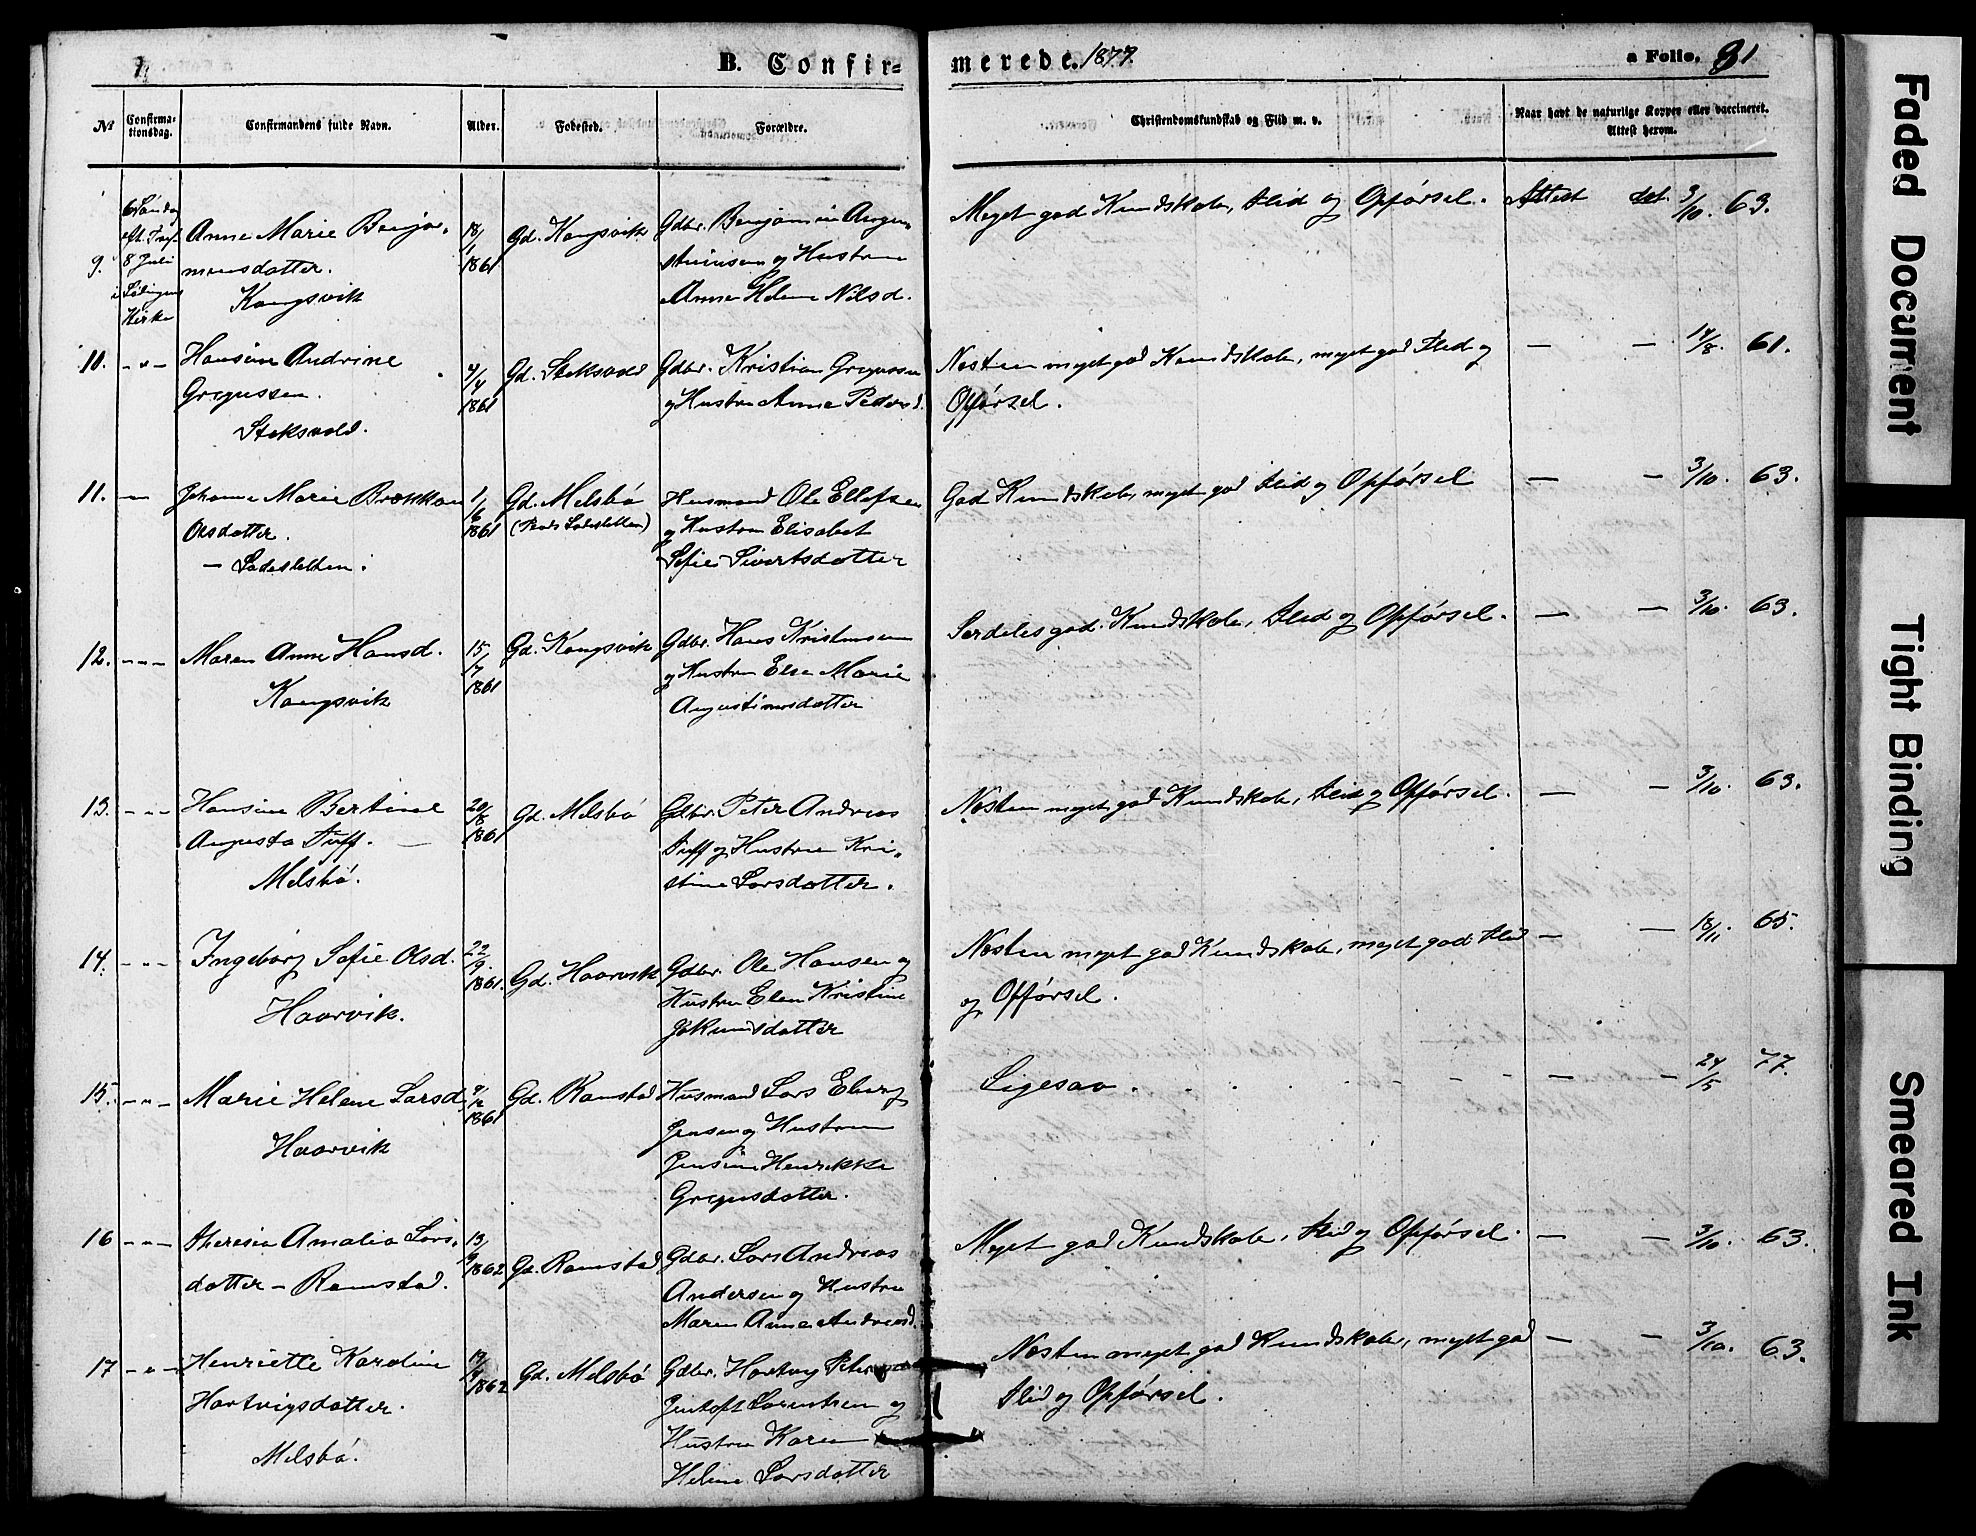 B. Confir-
merede. 1877.
a Folio. 81
№
Confirma-
tionsdag.
Confirmandens fulde Navn.
Alder.
Fødested.
Forældre.
Christendomskundskab og Flid m. v.
Naar havt de naturlige Kopper eller vaccineret.
Attest herom.
9.
6 Søndag
eft. Tref.
8 Juli
i Lødingens
Kirke
Anne Marie Benja-
minsdatter.
Kongsvik
18/1
1861
Gd. Kongsvik
Gdbr. Benjamin Augu-
stinussen og Hustru
Anne Helene Nilsd.
Meget god Kundskab, Flid og Opførsel.
Attest dat. 3/10. 63.
10. - " -
Hansine Andrine
Gregussen.
Stoksvold.
4/4
1861
Gd. Stoksvold
Gdbr. Kristian Gregussen
og Hustru Anne Pedersd.
Næsten meget god Kundskab, meget god Flid og
Opførsel.
— — 14/8. 61.
11. —
Johanna Marie Brækkan
Olsdatter.
— Ladesletten.
1/6
1861
Gd. Melsbø
(Plads Ladesletten)
Husmand Ole Ellefsen
og Hustru Elisabet
Sofie Sivertsdatter
God Kundskab, meget god Flid og Opførsel
— — 3/10. 63.
12. - " -
Maren Anne Hansd.
Kongsvik
15/7
1861
Gd. Kongsvik
Gdbr. Hans Kristensen
og Hustru Else Marie
Augustinusdatter
Særdeles god Kundskab, Flid og Opførsel.
— — 3/10. 63.
13. - " -
Hansine Bertine
Augusta Tuff.
Melsbø.
20/8
1861
Gd. Melsbø
Gdbr. Peter Andreas
Tuff og Hustru Kri-
stine Larsdatter.
Næsten meget god Kundskab, Flid og Opførsel.
— — 3/10. 63.
14. - " -
Ingeborg Sofie Olsd.
Haarvik.
22/9.
1861.
Gd. Haarvik
Gdbr. Ole Hansen og
Hustru Elen Kristine
Jokumsdatter
Næsten meget god Kundskab, meget god Flid
og Opførsel.
— — 18/11. 65.
15. - " -
Marie Helene Larsd.
Haarvik
9/12
1861
Gd. Ramstad
Husmand Lars Eberg
Jensen og Hustru
Jensine Henrikke
Gregusdatter.
Ligesaa.
— — 24/5 77.
16 - " -
Theresia Amalia Lars-
datter – Ramstad.
13/2
1862
Gd. Ramstad
Gdbr. Lars Andreas
Andersen og Hustru
Maren Anne Andreasd.
Meget god Kundskab, Flid og Opførsel.
— — 3/10. 63.
17 - " -
Henriette Karoline
Hartvigsdatter.
Melsbø.
1862
Gd. Melsbø
Gdbr. Hartvig Peter
Jentoft Lorentsen og
Hustru Karen
Helene Larsdatter
Næsten meget god Kundskab, meget god
Flid og Opførsel.
— — 3/10. 63.
Faded Document
Tight Binding
Smeared Ink